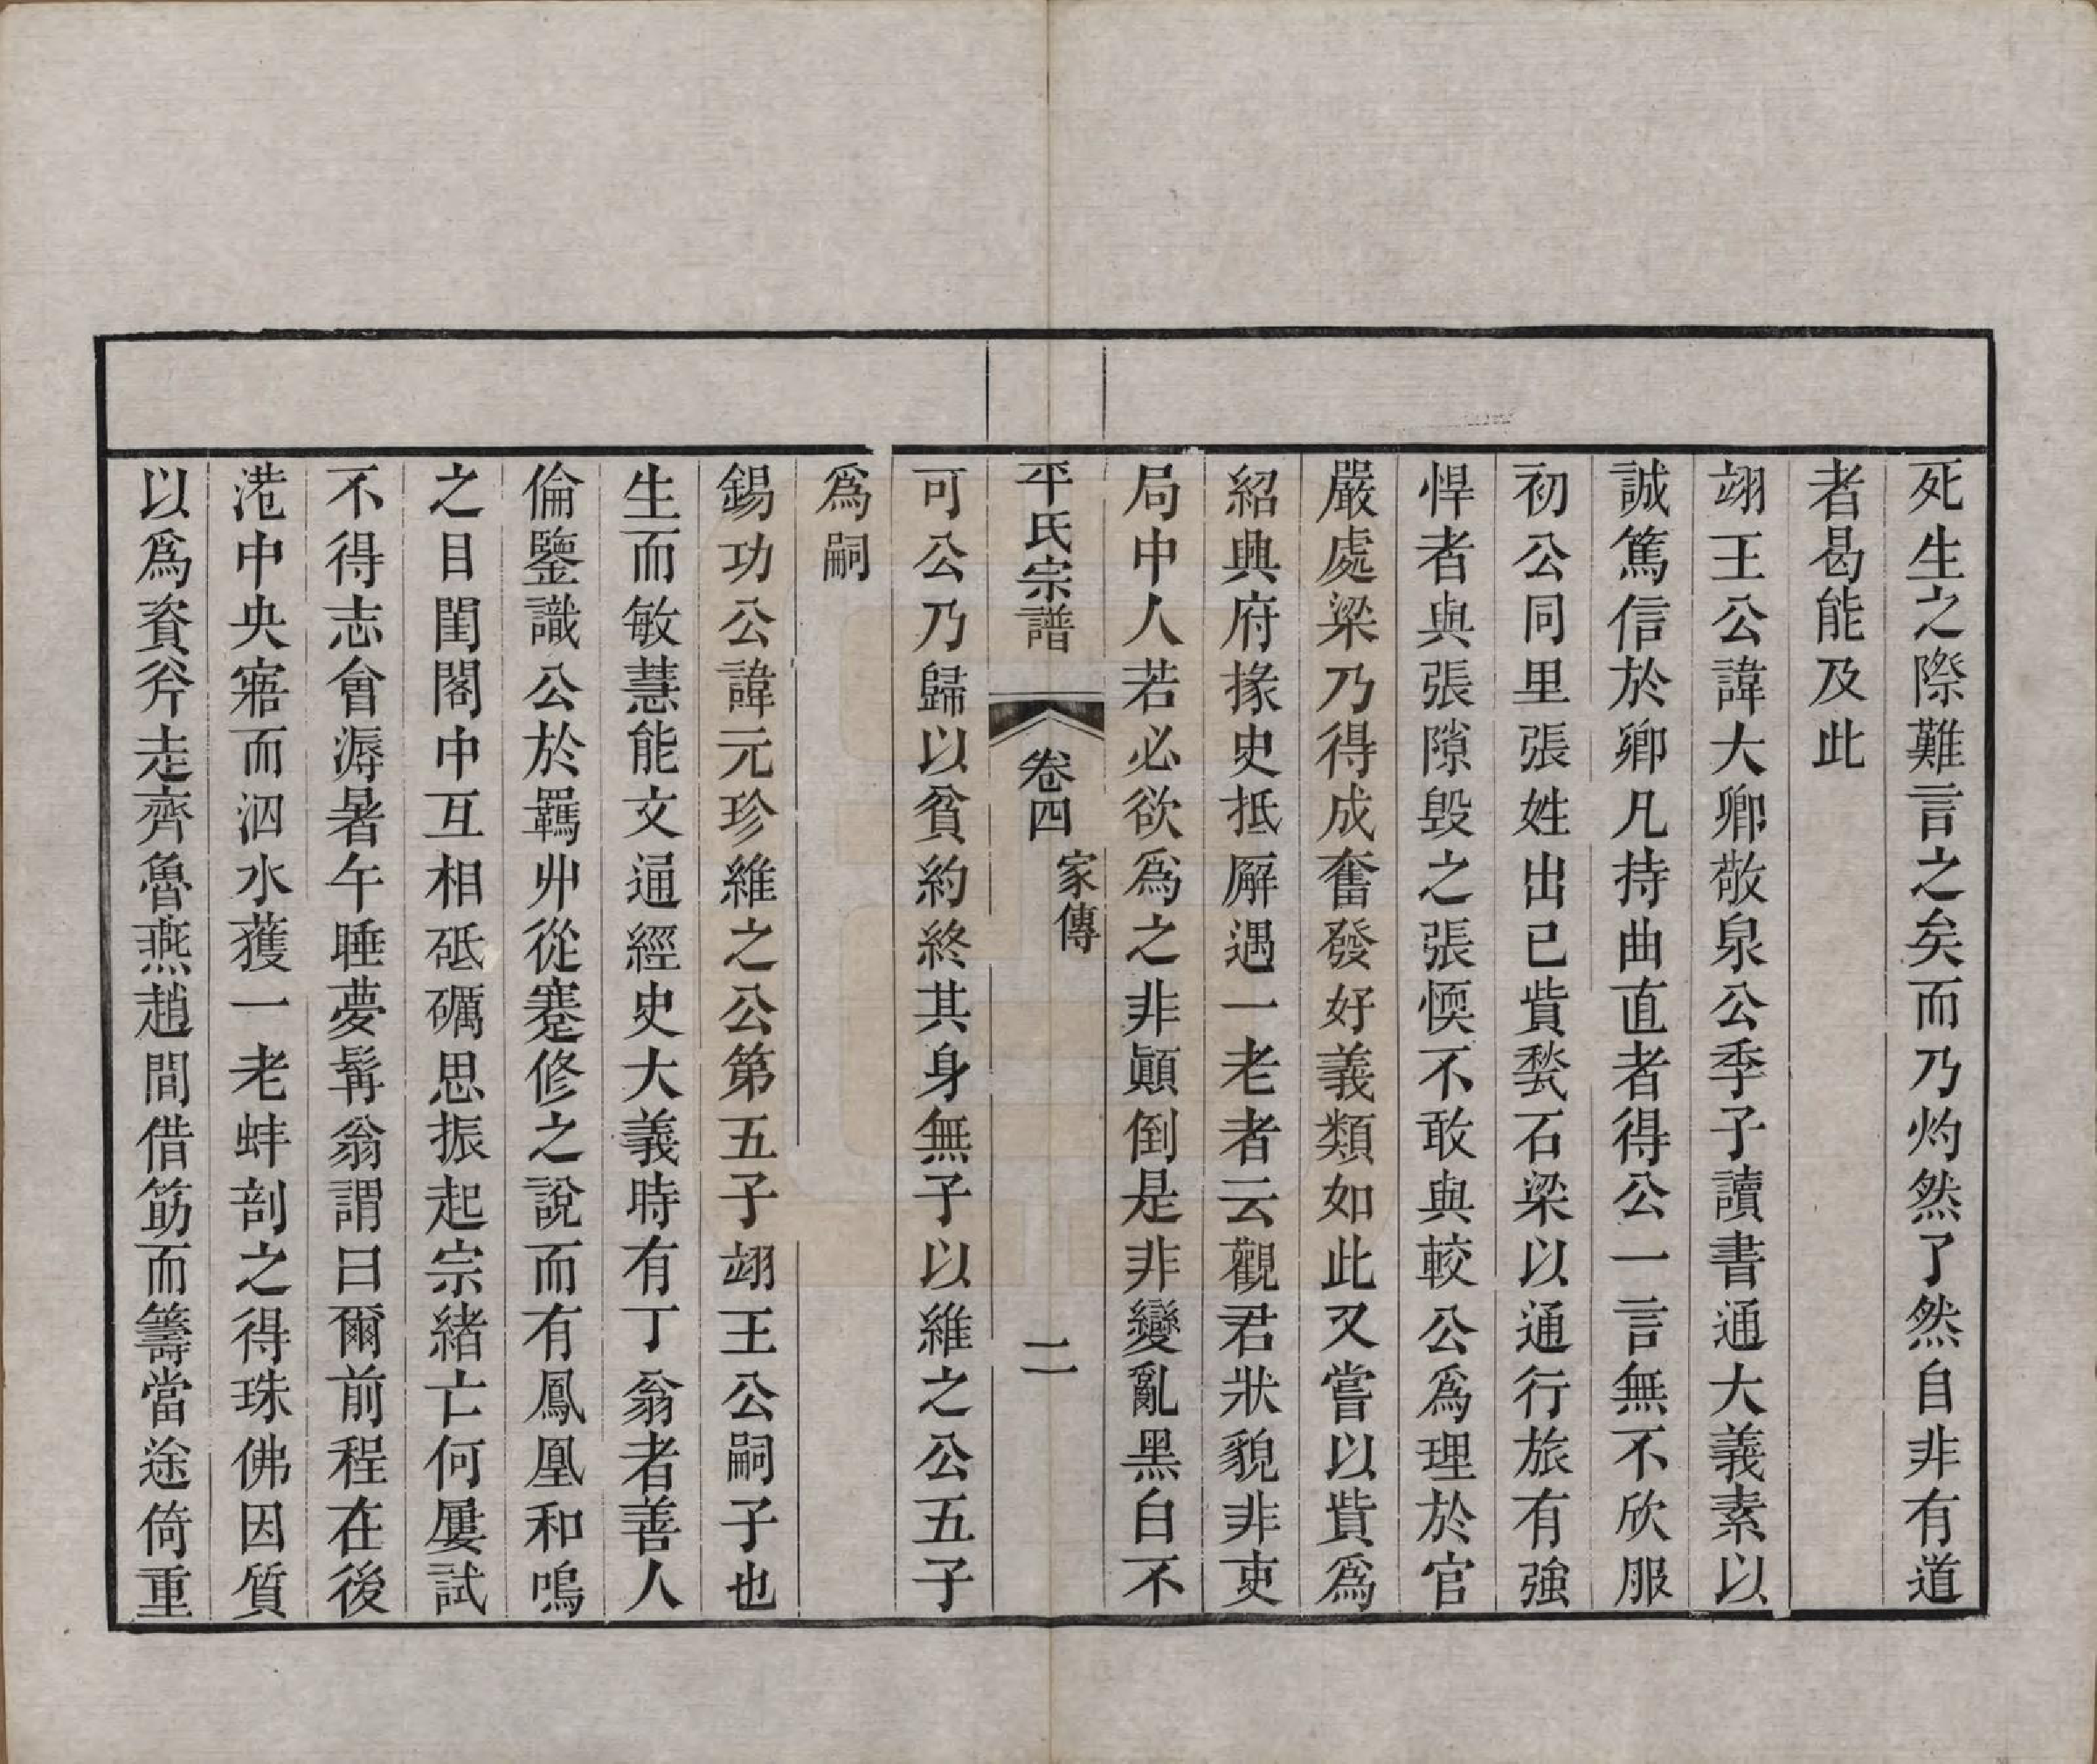 死生之際難言之矣而乃灼然了然自非有道
者曷能及此
翊王公諱大卿敬泉公季子讀書通大義素以
誠篤信於鄉凡持曲直者得公一言無不欣服
初公同里張姓出已貲甃石梁以通行旅有強
悍者與張隙毀之張愞不敢與較公爲理於官
嚴處梁乃得成奮發好義類如此又嘗以貲爲
紹興府掾史抵廨遇一老者云觀君狀貌非吏
局中人若必欲爲之非顚倒是非變亂黑白不
平氏宗譜
卷四
家傳
二
可公乃歸以貧約終其身無子以維之公五子
爲嗣
錫功公諱元珍維之公第五子翊王公嗣子也
生而敏慧能文通經史大義時有丁翁者善人
倫鑒識公於羈丱從蹇修之說而有鳳凰和鳴
之目閨閣中互相砥礪思振起宗緒亡何屢試
不得志會溽暑午睡夢髯翁謂曰爾前程在後
港中央寤而泅水獲一老蚌剖之得珠佛因質
以爲資斧走齊魯燕趙間借筯而籌當途倚重